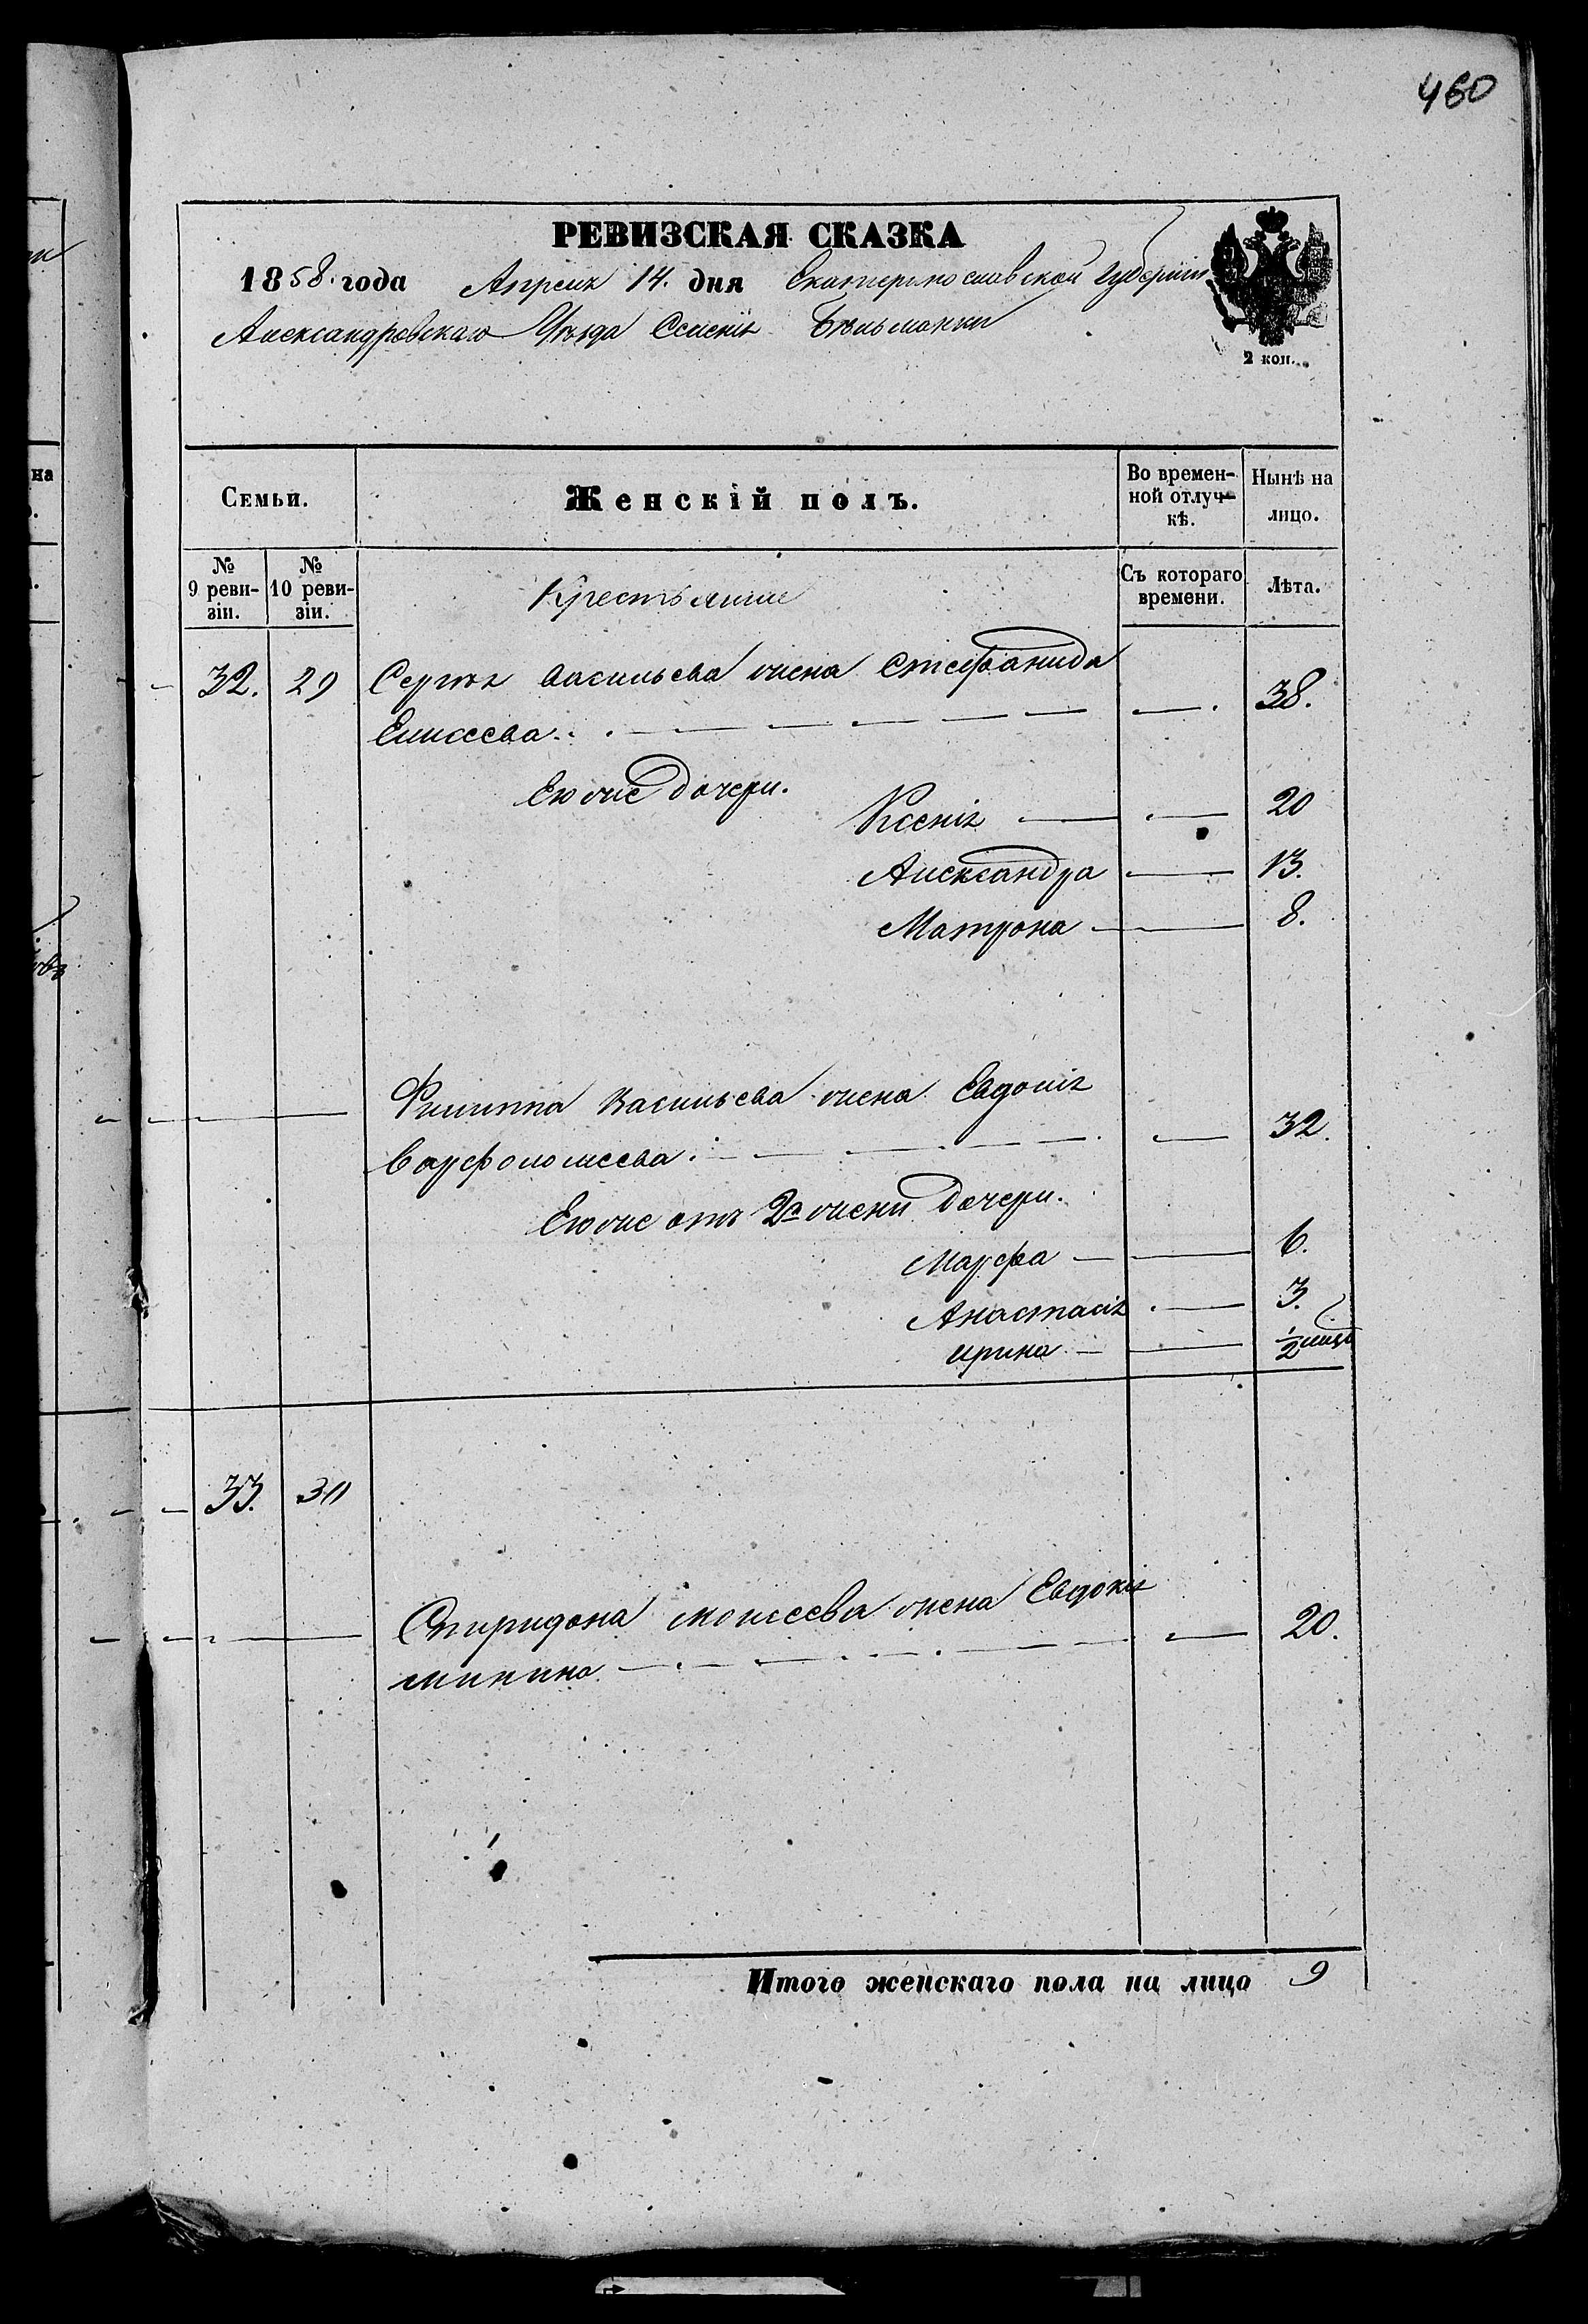 460
РЕВИЗСКАЯ СКАЗКА
1858. года Апреля 14. дня Екатеринославской Губерніи
Александровскаго Уѣзда Селенія Бѣльманки
2 коп.
Семьи. Женскій полъ. Во времен-ной отлуч-кѣ. Нынѣ на лицо.
№ 9 реви-зіи. № 10 реви-зіи. Крестьяне Съ котораго времени. Лѣта.
32. 29 Сергѣя Васильева жена Стефанида
Елисеева 38.
Его же дочери.
Ксенія 20
Александра 13.
Матрона 8.
Филиппа Васильева жена Евдокія
Варфоломеева 32.
Его же отъ 2й жены дочери.
Марфа 6.
Анастасія 3.
Ирина 1/2 года
33. 30
Спиридона Моисеева жена Евдокія
Минина 20.
Итого женскаго пола на лицо 9